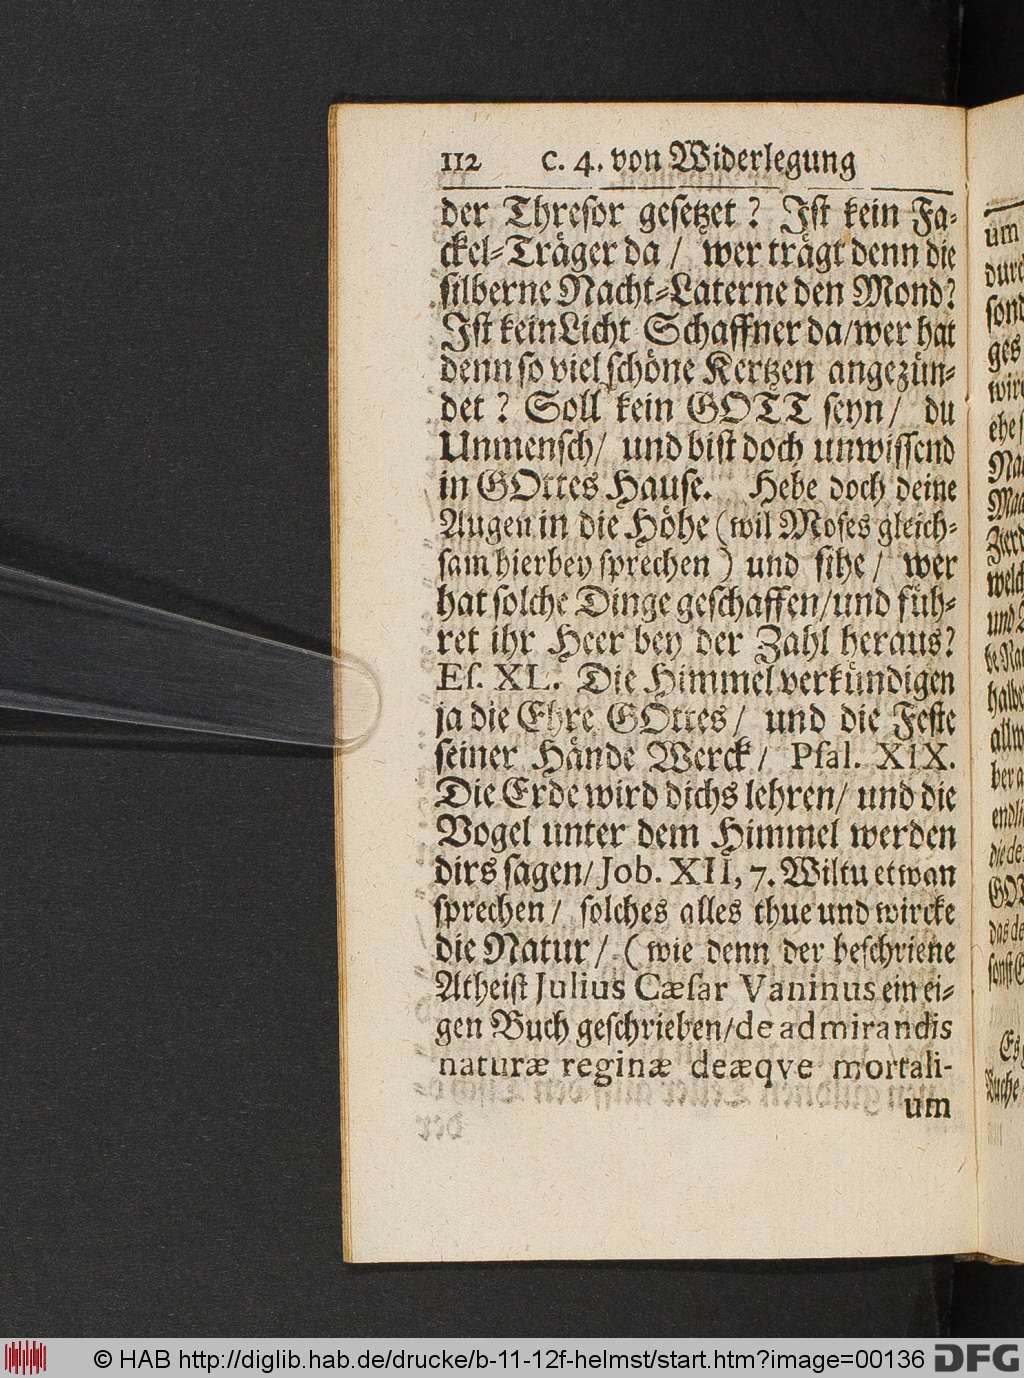 112 c. 4. von Widerlegung
der Thresor gesetzet? Ist kein Fa-
ckel-Träger da/ wer trägt denn die
silberne Nacht-Laterne den Mond?
Ist kein Licht Schaffner da/wer hat
denn so viel schöne Kertzen angezün-
det? Soll kein GOTT seyn/ du
Unmensch/ und bist doch unwissend
in GOttes Hause. Hebe doch deine
Augen in die Höhe (wil Moses gleich-
sam hierbey sprechen) und sihe/ wer
hat solche Dinge geschaffen/und füh-
ret ihr Heer bey der Zahl heraus?
Eſ. XL. Die Himmel verkündigen
ja die Ehre GOttes/ und die Feste
seiner Hände Werck/ Pſal. XIX.
Die Erde wird dichs lehren/ und die
Vogel unter dem Himmel werden
dirs sagen/Job. XII, 7. Wiltu etwan
sprechen/ solches alles thue und wircke
die Natur/ (wie denn der beschriene
Atheist Julius Cæſar Vaninus ein ei-
gen Buch geschrieben/de admirandis
naturæ reginæ deæqve mortali-
um
um
ges
Es
Buche
© HAB http://diglib.hab.de/drucke/b-11-12f-helmst/start.htm?image=00136 DFG